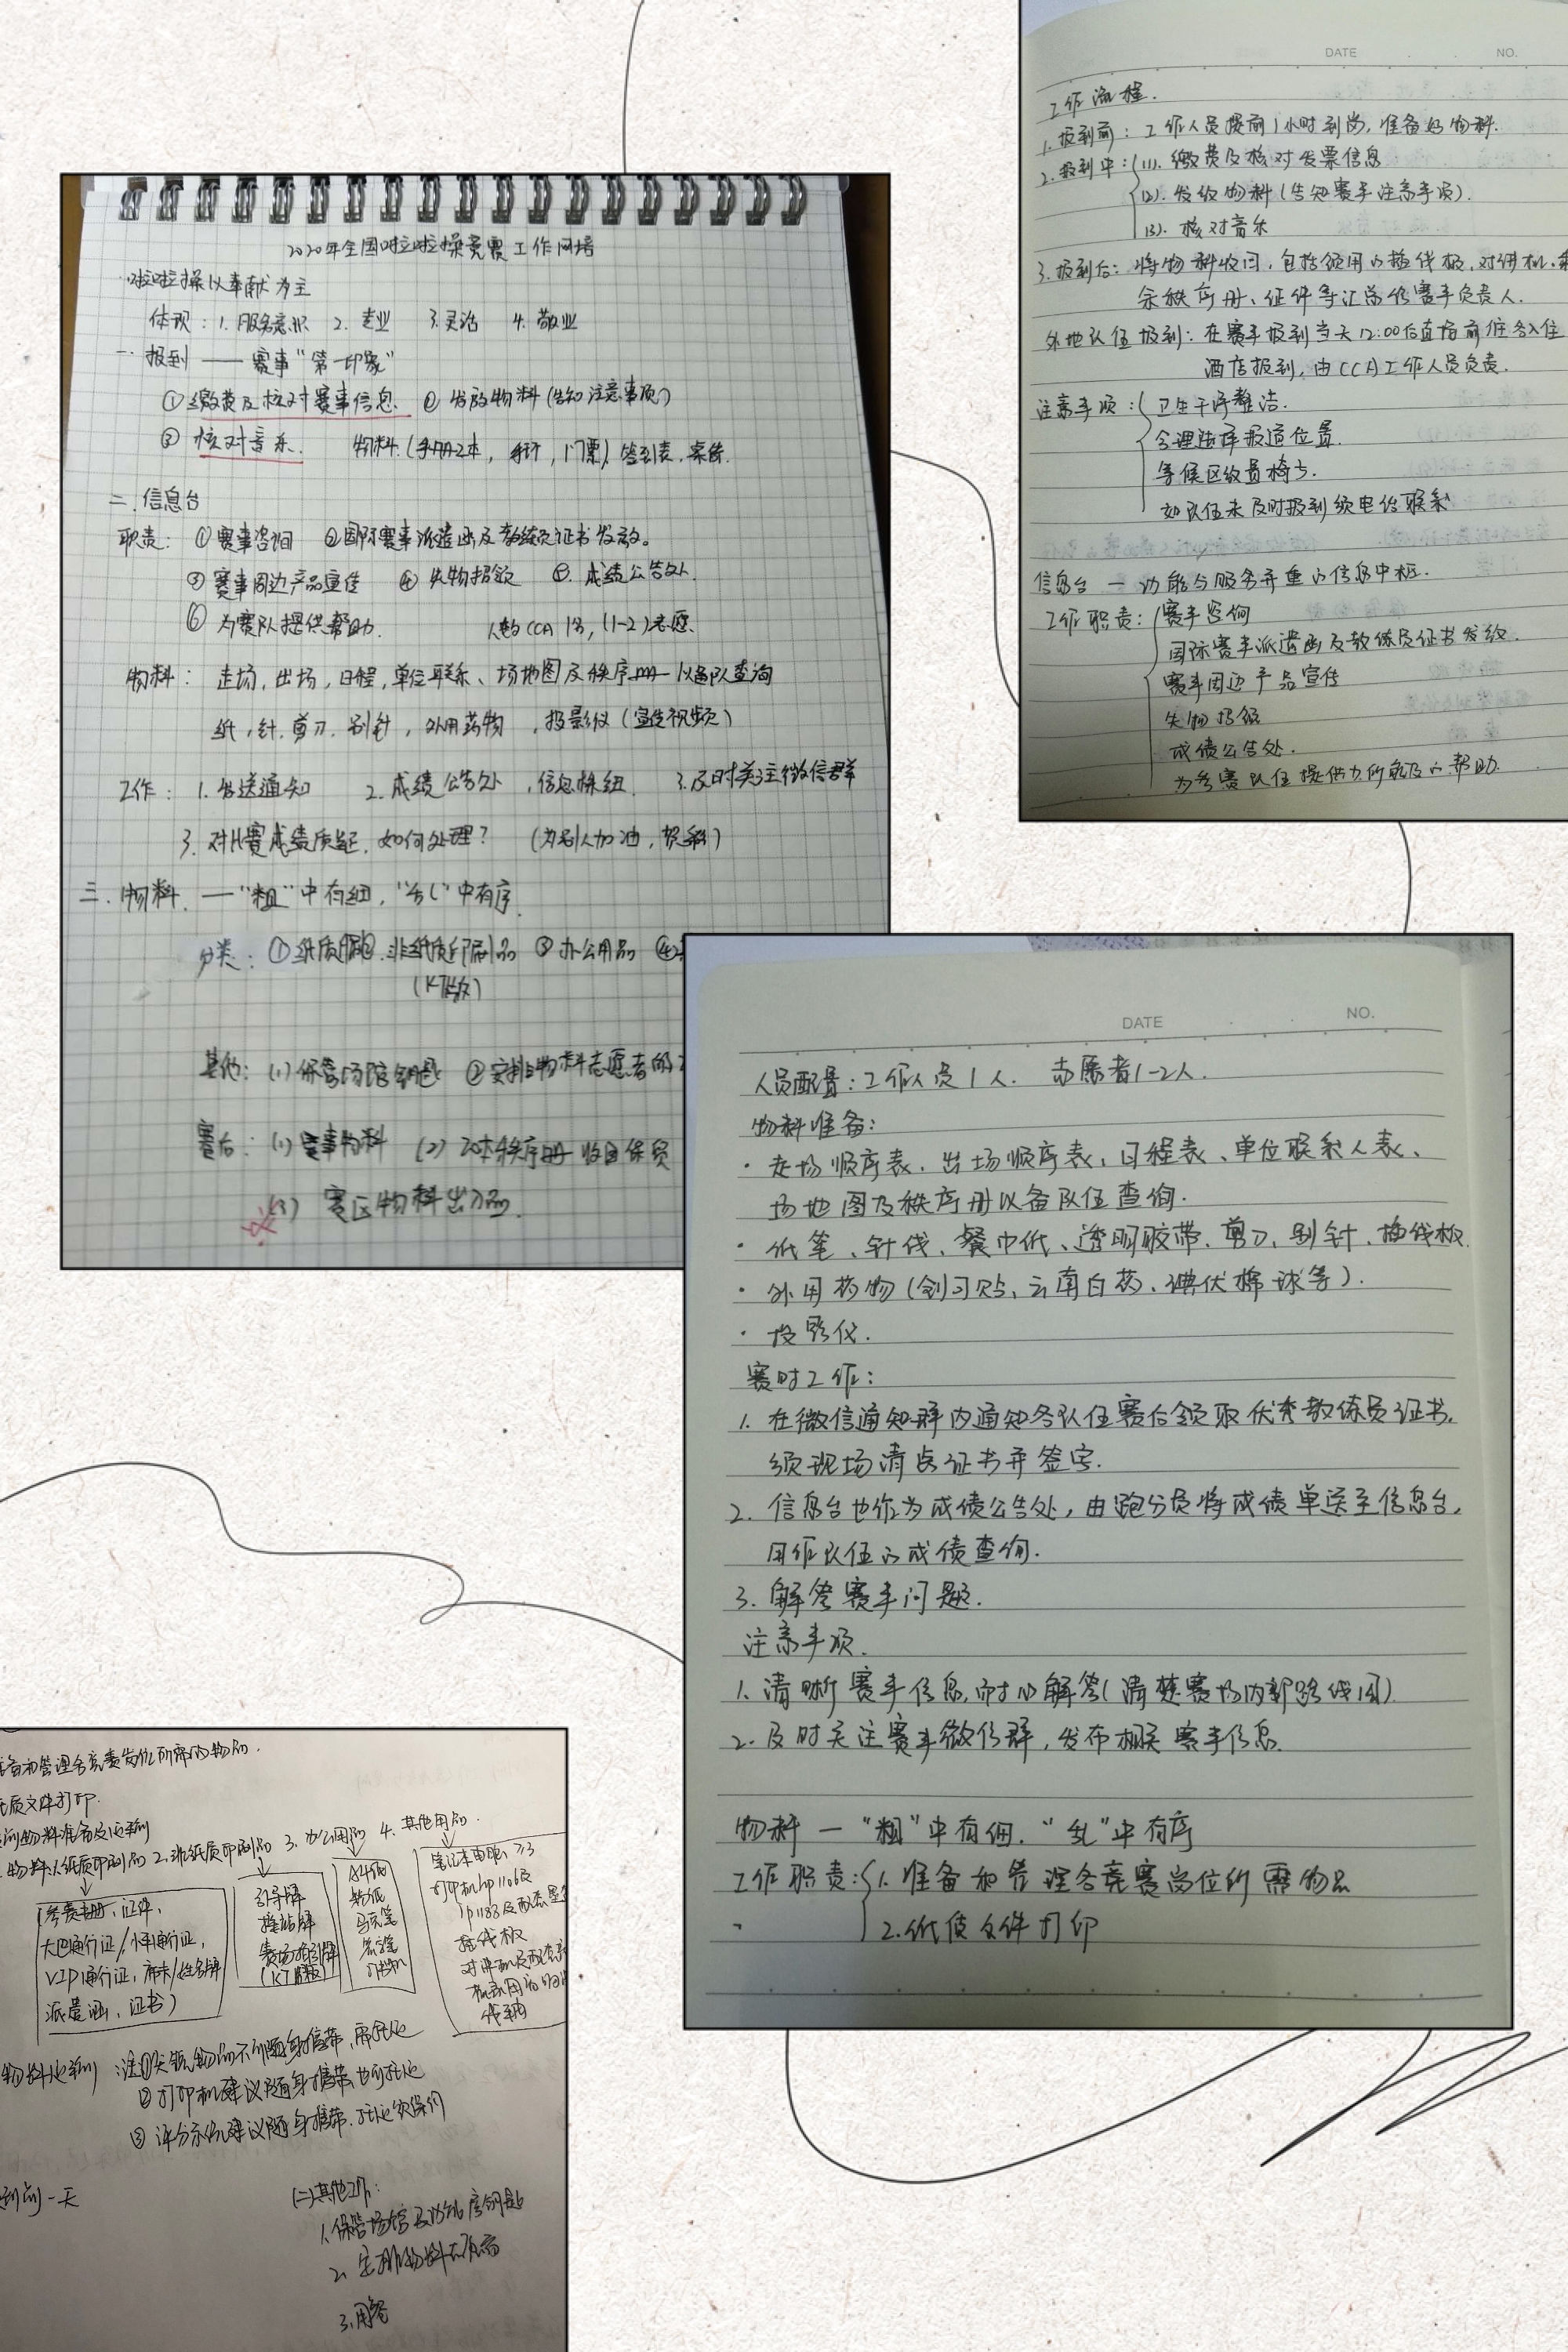 2020年全国啦啦操竞赛工作网培
啦啦操以奉献为主
体现：1.服务意识 2.专业 3.灵活 4.敬业
一.报到——赛事“第一印象”
①缴费及核对赛事信息. ②发放物料(告知注意事项)
③核对音乐. 物料.(手册2本，门票)签到表.
二.信息台
职责：①赛事咨询 ②国际赛事派遣函及教练员证书发放。
③赛事周边产品宣传 ④失物招领 ⑤.成绩公告处.
⑥为赛队提供帮助. CCA 1名，(1-2)志愿
物料：走场，出场，日程，单位联系、场地图及秩序册以备队查询
纸，针.剪刀.别针，外用药物，投影仪(宣传视频)
工作：1.发送通知 2.成绩公告处，信息枢纽. 3.及时关注微信群
3.对比赛成绩质疑.如何处理？(为别人加油，祝福)
三.物料.—“粗”中有细，“乱”中有序.
分类：①纸质②.非纸质印刷品 ③办公用品 ④
(KT板)
其他：(1)保管场馆钥匙 ②安排物料志愿者的
赛后：(1)赛事物料 (2)20本秩序册收回保管
(3)赛区物料
DATE NO.
工作流程.
1.报到前：工作人员提前1小时到岗，准备好物料.
2.报到中：(1).缴费及核对发票信息
(2).发放物料(告知赛事注意事项).
(3).核对音乐
3.报到后：将物料收回，包括领用的插线板，对讲机、
余秩序册、证件等汇总给赛事负责人.
外地队伍报到：在赛事报到当天12:00后直接前往各入住
酒店报到，由CCA工作人员负责.
注意事项：卫生干净整洁.
合理选择报道位置.
等候区放置椅子.
如队伍未及时报到须电话联系
信息台—功能与服务并重的信息中枢.
工作职责：赛事咨询
国际赛事派遣函及教练员证书发放.
赛事周边产品宣传
失物招领
成绩公告处.
为参赛队伍提供力所能及的帮助.
DATE NO.
人员配置：工作人员1人. 志愿者1-2人.
物料准备：
·走场顺序表.出场顺序表、日程表、单位联系人表、
场地图及秩序册以备队伍查询.
·纸笔、针线、餐巾纸、透明胶带.剪刀、别针.插线板.
·外用药物(创可贴、云南白药、碘伏棉球等).
·投影仪.
赛时工作：
1.在微信通知群内通知各队伍赛后领取优秀教练员证书.
须现场清点证书并签字.
2.信息台也作为成绩公告处，由跑分员将成绩单送至信息台，
用作队伍的成绩查询.
3.解答赛事问题.
注意事项.
1.清晰赛事信息，耐心解答(清楚赛场内部路线图)
2.及时关注赛事微信群，发布相关赛事信息.
物料—“粗”中有细.“乱”中有序
工作职责：1.准备和管理各竞赛岗位所需物品
2.纸质文件打印
备和管理各竞赛岗位所需的物品.
质文件打印.
前物料准备及托运
物料1.纸质印刷品 2.非纸质印刷品 3.办公用品 4.其他用品.
参赛手册、证件，
大巴通行证/小车通行证，
VIP通行证，席卡/姓名牌
派遣函、证书)
引导牌
接站牌
赛场指引牌
(KT板)
A4纸
马克笔
签字笔
笔记本电脑≥3
打印机hp1106及
插线板
对讲机及配套
物料托运 注①大组物品不可随身携带，需托运
②打印机建议随身携带，也可托运
③评分系统建议随身携带.托运须保价
到前一天
(二)其他工作：
1.保管场馆及功能房钥匙
3.用餐